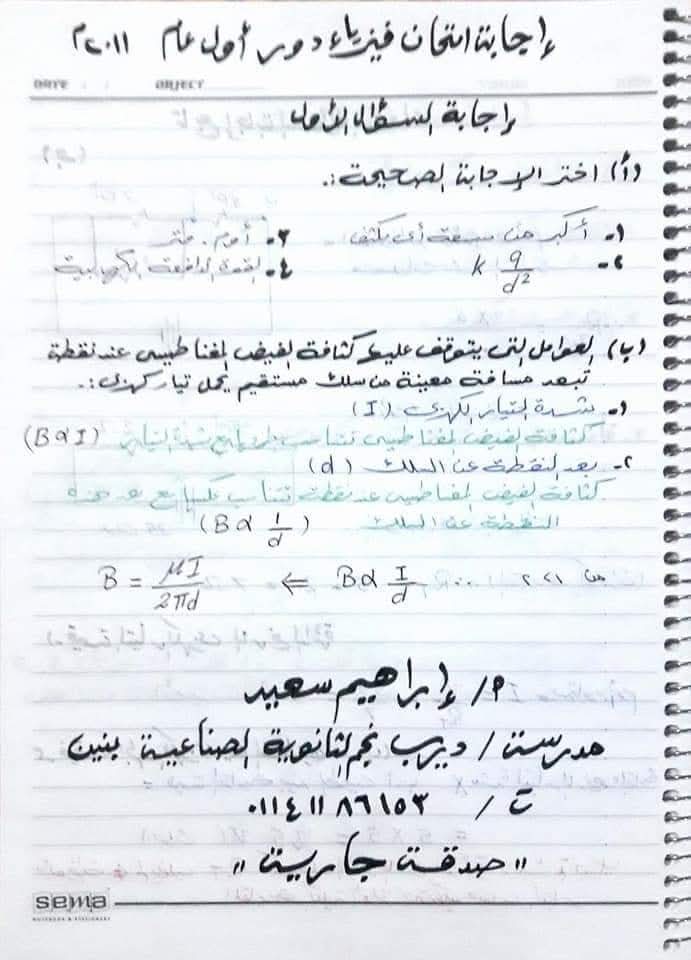 إجابة امتحان فيزياء دور أول عام ٢٠١١م
DATE OBJECT
إجابة السؤال الأول
(أ) اختر الإجابة الصحيحة:.
١- أكبر من سعة أى مكثف
٢- k q/d²
٣- أوم . متر
٤- القوة الدافعة الكهربية
(ب) العوامل التى يتوقف عليها كثافة الفيض المغناطيسى عند نقطة
تبعد مسافة معينة من سلك مستقيم يحمل تيار كهربى:.
١- شدة التيار الكهربى (I)
كثافة الفيض المغناطيسى تتناسب طرديا مع شدة التيار (B α I)
٢- بعد النقطة عن السلك (d)
كثافة الفيض المغناطيسى عند نقطة تتناسب عكسيا مع بعد هذه
النقطة عن السلك (B α 1/d)
من ١، ٢ B α I/d ⇐ B = μI/2πd
م/ إبراهيم سعيد
مدرسة / ديرب نجم الثانوية الصناعية بنين
ت / ٠١١٤١١٨٦١٥٣
" صدقة جارية "
sema